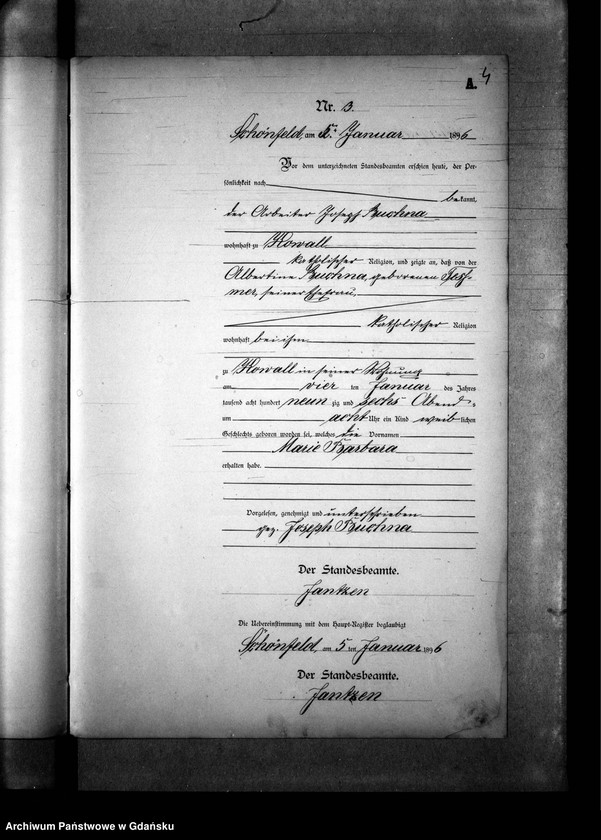 A. 4
Nr. 3.
Schönfeld, am 5. Januar 1896
Vor dem unterzeichneten Standesbeamten erschien heute, der Per-
sönlichkeit nach
bekannt,
der Arbeiter Joseph Buchna
wohnhaft zu Kowall
katholischer Religion, und zeigte an, daß von der
Albertine Buchna, geborenen
mer, seiner Ehefrau,
katholischer Religion
wohnhaft bei ihm
zu Kowall in seiner Wohnung
am vier ten Januar des Jahres
tausend acht hundert neun zig und sechs Abend s
um acht Uhr ein Kind weib lichen
Geschlechts geboren worden sei, welches die Vornamen
Marie Barbara
erhalten habe.
Vorgelesen, genehmigt und unterschrieben
gez. Joseph Buchna
Der Standesbeamte.
Jantzen
Die Uebereinstimmung mit dem Haupt-Register beglaubigt
Schönfeld, am 5 ten Januar 1896
Der Standesbeamte.
Jantzen
Archiwum Państwowe w Gdańsku